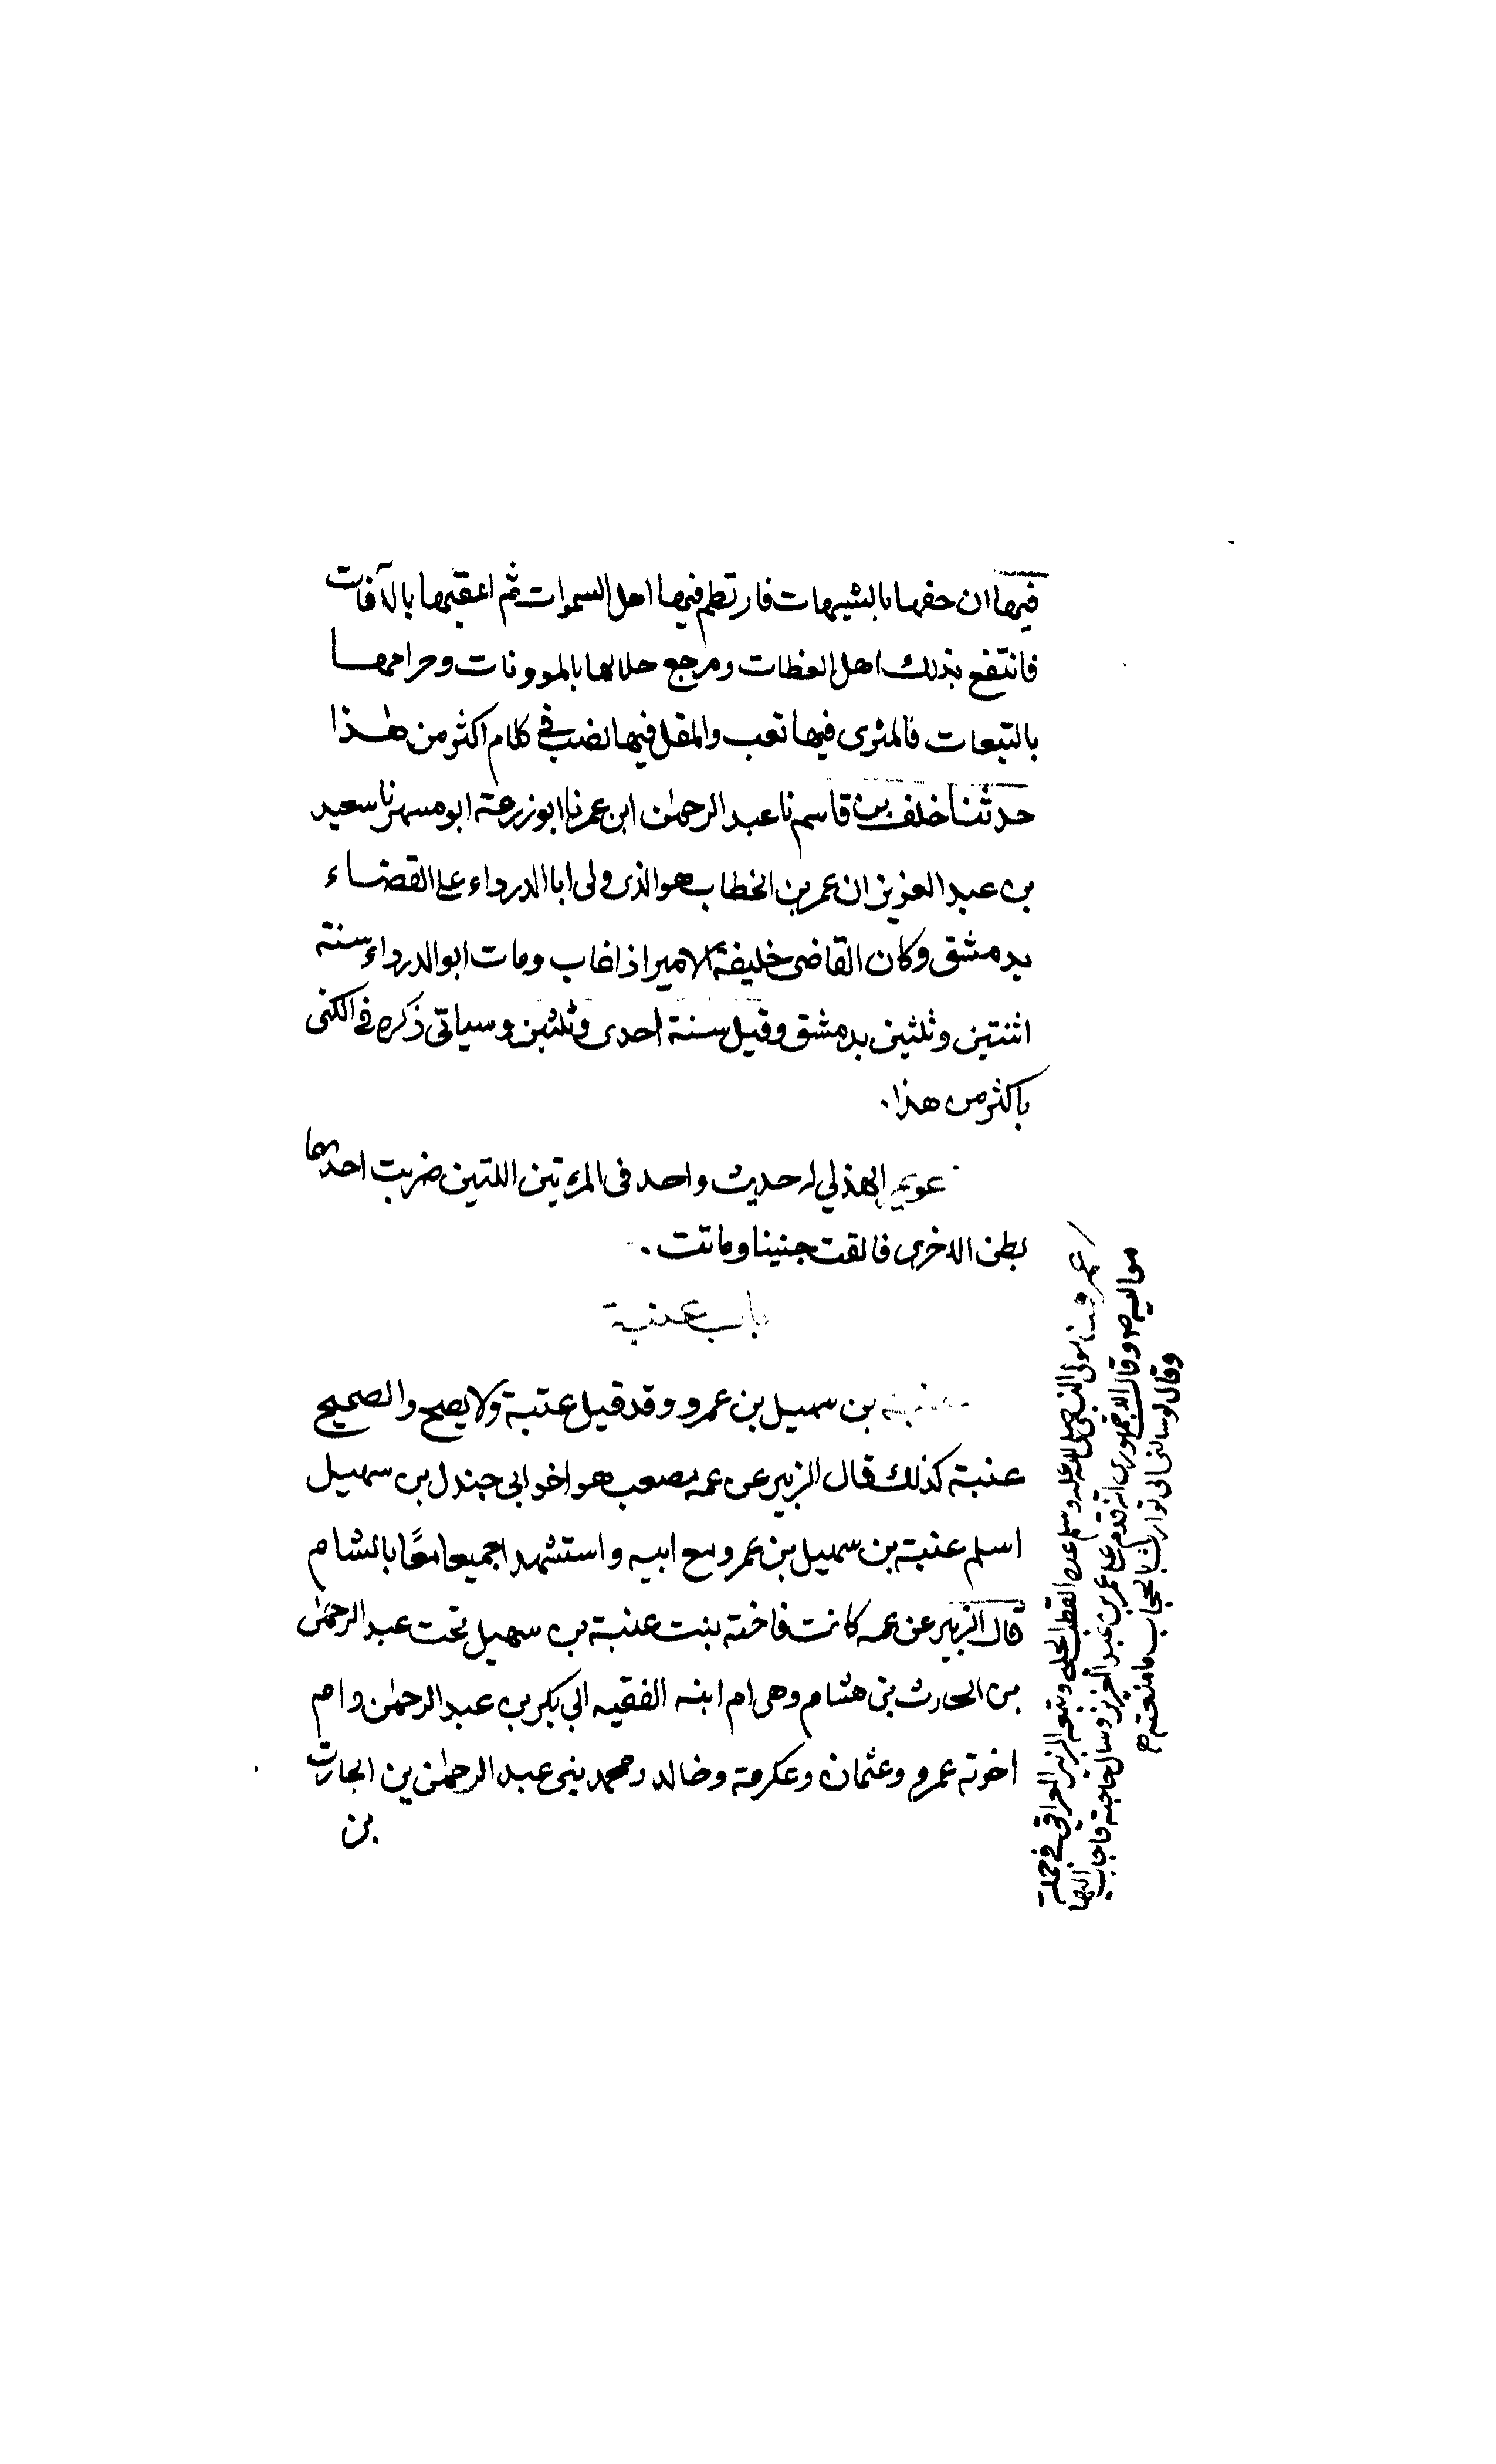 فيها ان حفها بالشبهات فارتطم فيها اهل السموات ثم اعقبها بالآفات
فانتفع بذلك اهل العظات ومزج حلالها بالموونات وحرامها
بالتبعات فالمثرى فيها تعب والمقل فيها نضب في كلام اكثر من هذا
حدثنا خلف بن قاسم نا عبد الرحمٰن ابن عمر نا ابو زرعة ابو مسهر نا سعيد
بن عبد العزيز ان عمر بن الخطاب هو الذى ولى ابا الدرداء على القضاء
بدمشق وكان القاضى خليفة الامير اذا غاب ومات ابو الدرداء سنة
اثنتين وثلثين بدمشق وقيل سنة احدى وثلثين وسياتى ذكره في الكنى
باكثر من هذا.
عويم الهذلي له حديث واحد فى المرءتين اللتين ضربت احدىهما
بطن الاخرى فالقت جنينا وماتت.
باب عنبة
عنبة بن سهيل بن عمرو وقد قيل عتبة ولا يصح والصحيح
عنبة كذلك قال الزبير عن عمه مصعب هو اخو ابى جندل بن سهيل
اسلم عنبة بن سهيل بن عمرو مع ابيه واستشهدا جميعا معًا بالشام
قال الزبير عن عمه كانت فاختة بنت عنبة بن سهيل تحت عبد الرحمٰن
بن الحارث بن هشام وهى ام ابنه الفقيه ابي بكر بن عبد الرحمٰن وام
اخوته عمرو وعثمان وعكرمة وخالد ومحمد بنى عبد الرحمٰن بن الحارث
بن
مولى النبي صلى الله عليه وسلم عده القطب الحلبى وتبعه الزين العراقي في جملة
مواليه صم وقال الاجهورى انه قدم على عمر بن عبد العزيز وسال حاجته فاجاب اليها
وقال لو سالنى الى توارت بالحجاب ما منعته